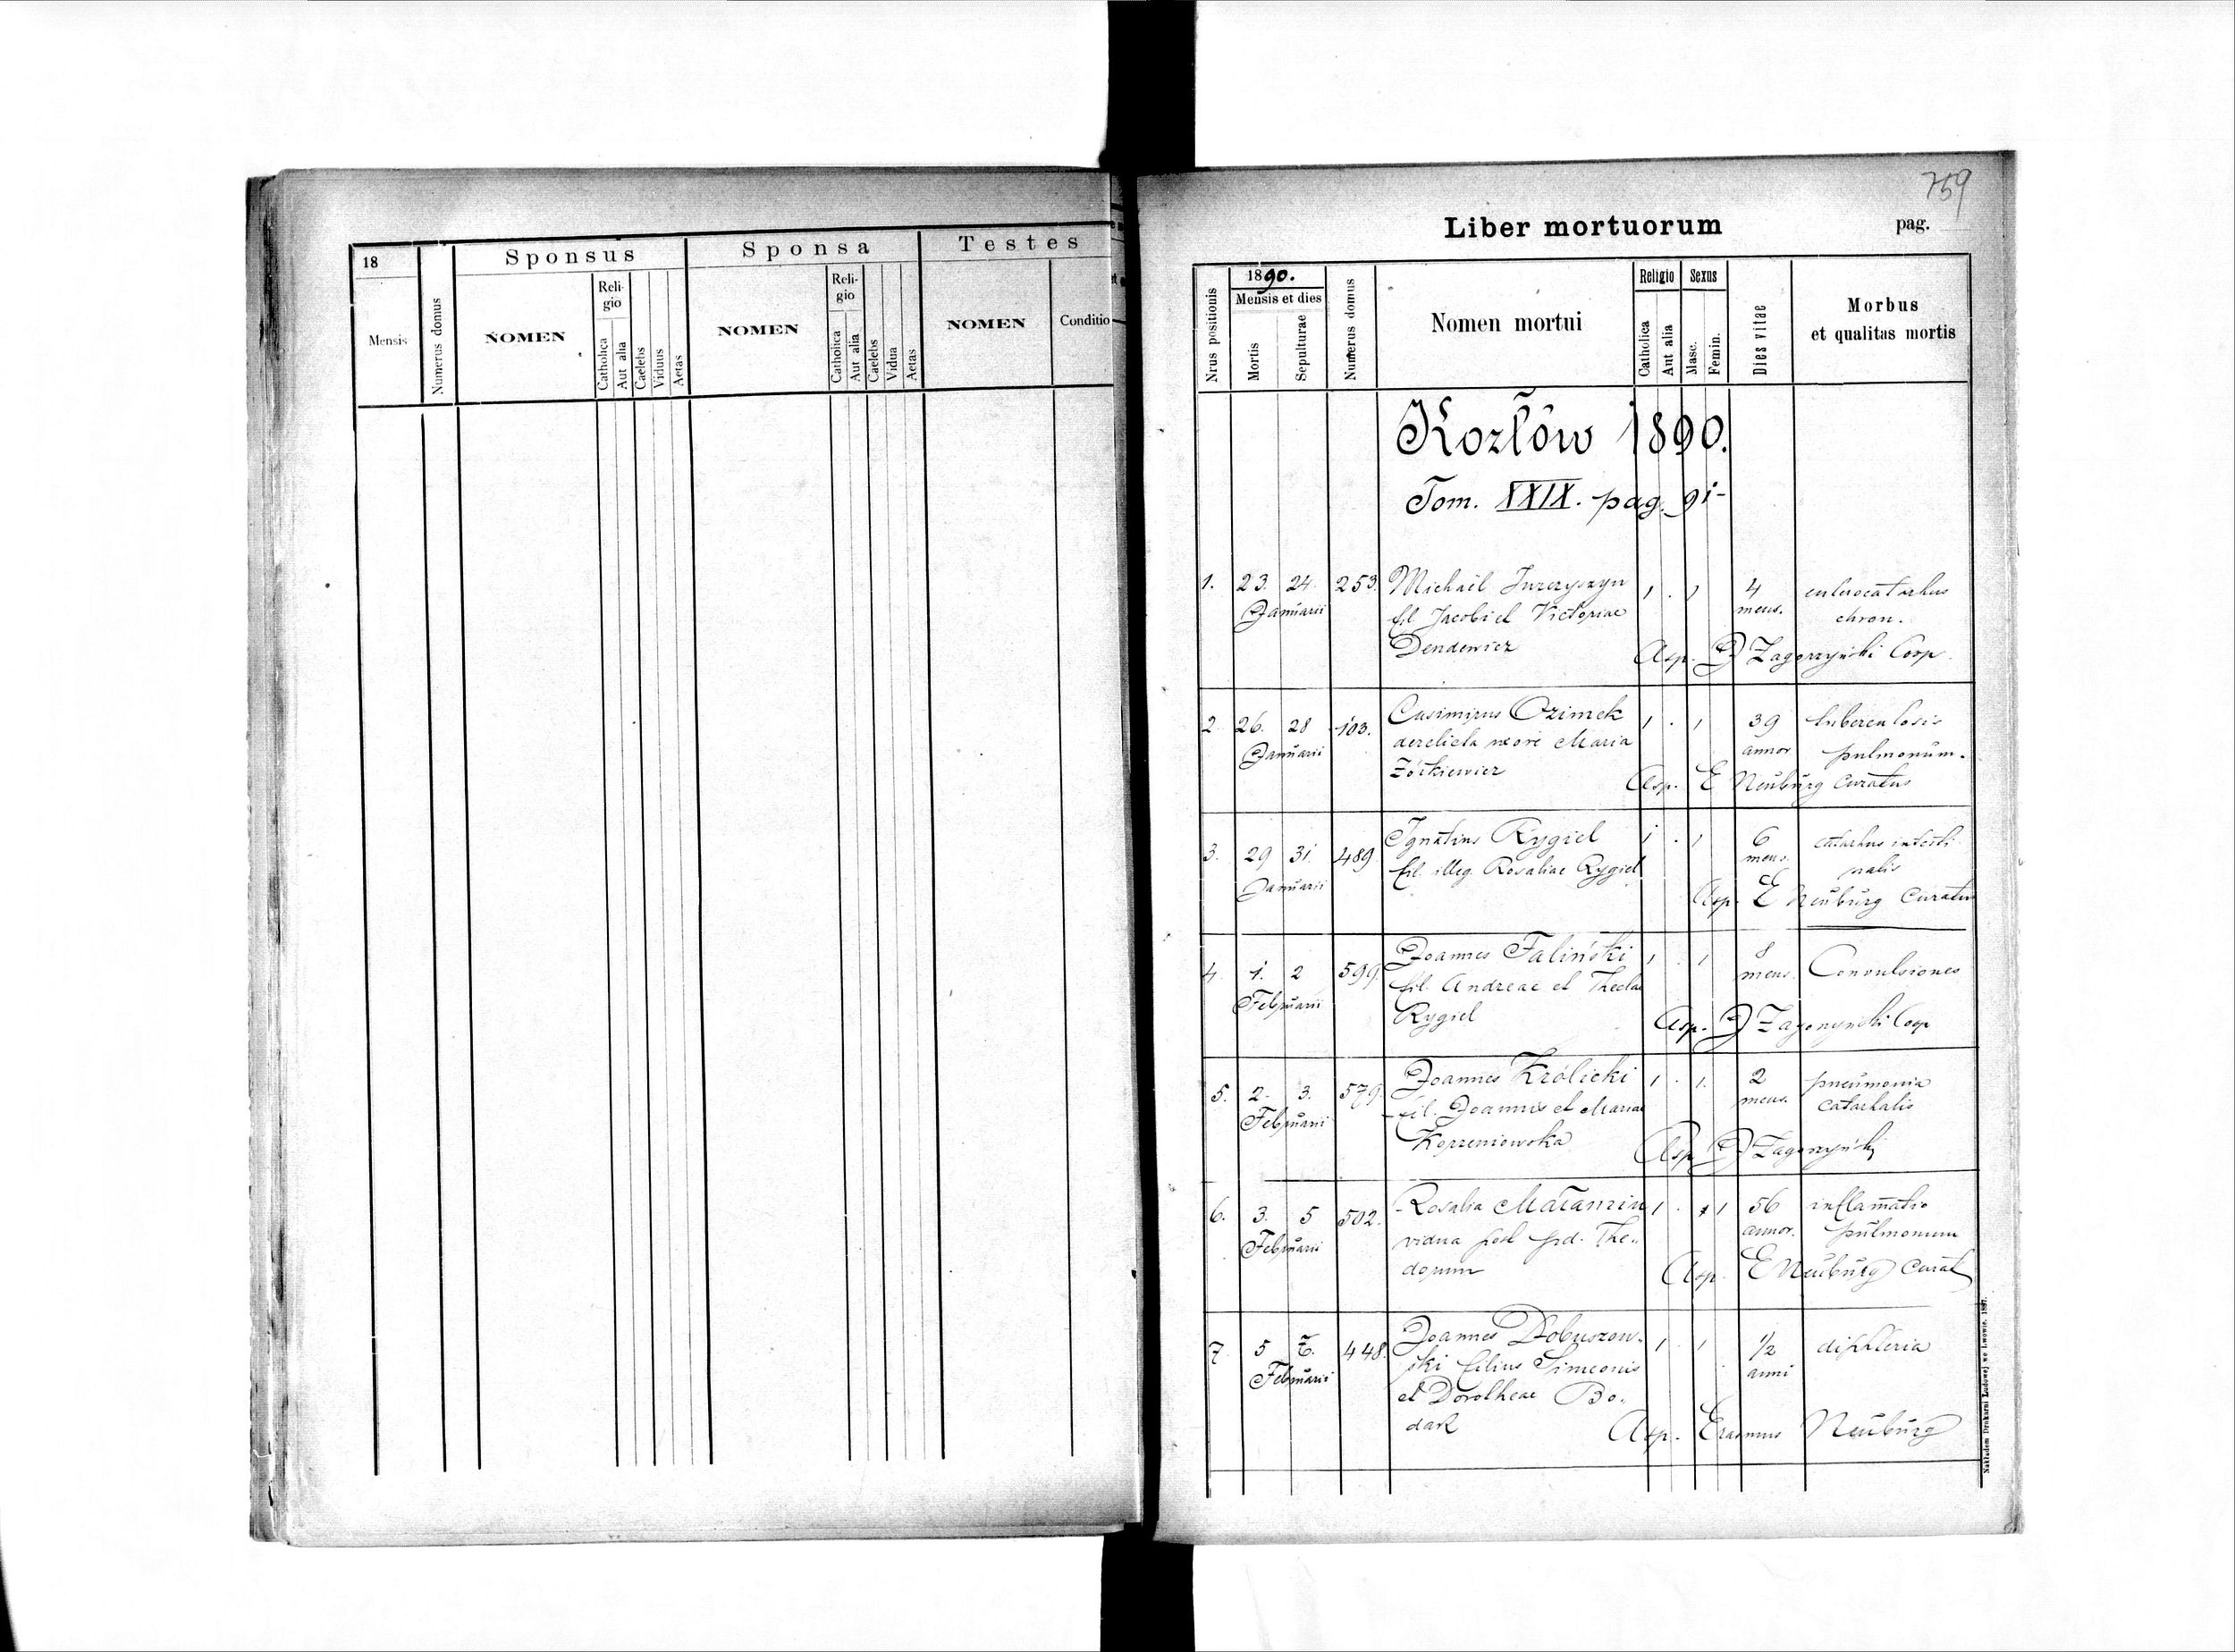 18
Mensis
Numerus domus
Sponsus
NOMEN
Reli-
gio
Catholica
Aut alia
Caelebs
Viduus
Aetas
Sponsa
NOMEN
Reli-
gio
Catholica
Aut alia
Caelebs
Vidua
Aetas
Testes
NOMEN
Conditio
759
Liber mortuorum
pag.
Nrus positionis
1890.
Mensis et dies
Mortis
Sepulturae
Numerus domus
Nomen mortui
Religio
Catholica
Aut alia
Sexus
Masc.
Femin.
Dies vitae
Morbus
et qualitas mortis
Kozłów 1890.
Tom. XXIX. pag. 91-
1. 23. 24. 253. Michaël Jurczyszyn 1 . 1 4 enterocatarhus
Januarii fil Jacobi et Victoriae mens. chron.
Dendewicz Asp. Zagorzyński Coop.
2. 26. 28 103. Casimirus Ozimek 1 . 1 39 tuberculosis
Januarii derelicta uxore Maria annor pulmonum.
Żółkiewicz Asp. E Neuburg Curatus
3. 29 31. 489 Ignatius Rygiel 1 . 1 6 catarhus intesti
Januarii fil. illeg. Rosaliae Rygiel mens. nalis
Asp. E Neuburg Curatus
4. 1. 2 599 Joannes Faliński 1 . 1 8 Convulsiones
Februarii fil. Andreae et Theclae mens.
Rygiel Asp. Zagorzyński Coop
5. 2. 3. 579. Joannes Królicki 1 . 1. 2 pneumonia
Februarii fil. Joannis et Mariae mens. catarhalis
Korzeniowska Asp Zagorzyński
6. 3. 5 502. Rosalia 1 . 1 56 inflamatio
Februarii vidua post pd. The„ annor. pulmonum
dorum Asp. E Neuburg Curat
7 5 7. 448. Joannes Dobuszow- 1 1 1/2 difteria
Februarii ski filius Simeonis anni
et Dorotheae Bo„
dak Asp. Erasmus Neuburg
Nakładem Drukarni Ludowej we Lwowie. 1887.